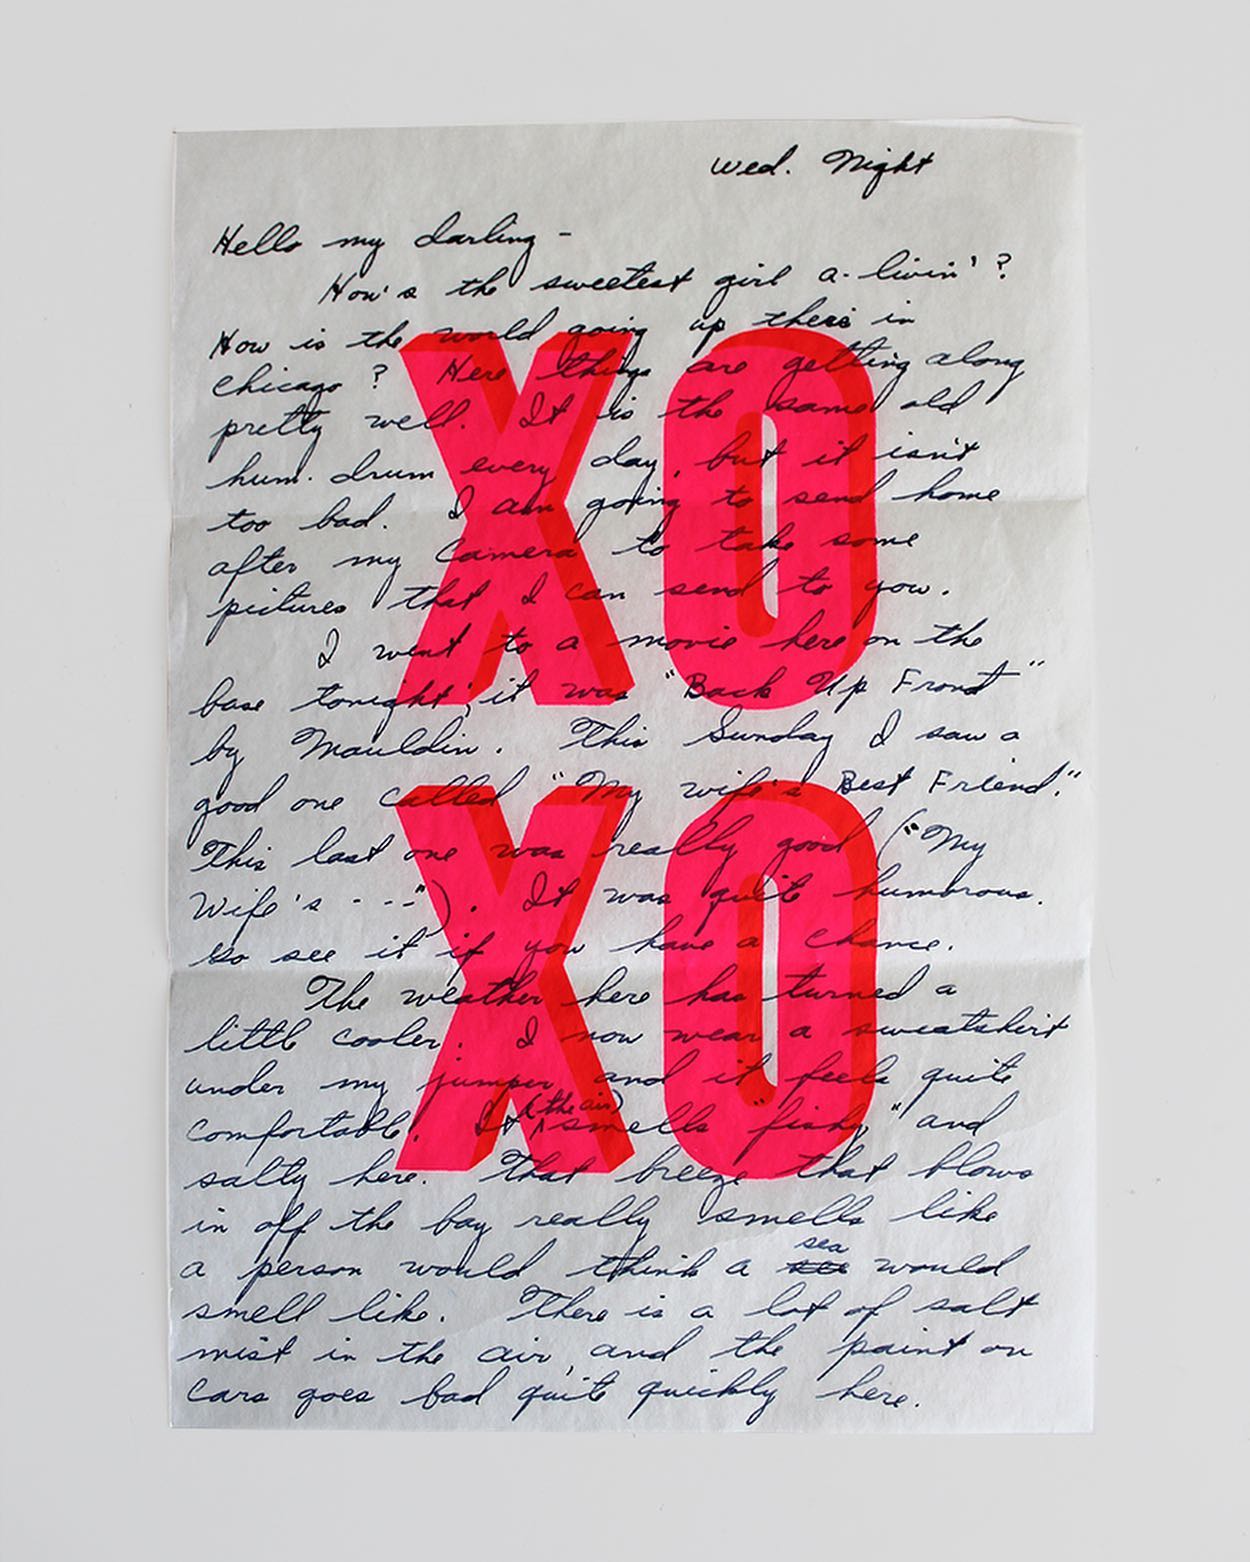 Wed. Night
Hello my darling -
How's the sweetest girl a-livin'?
How is the world going up there in
Chicago? Here things are getting along
pretty well. It is the same old
hum-drum every day, but it isn't
too bad. I am going to send home
after my camera to take some
pictures that I can send to you.
I went to a movie here on the
base tonight; it was "Back Up Front"
by Mauldin. This Sunday I saw a
good one called "My wife's Best Friend."
This last one was really good ("My
Wife's - - -"). It was quite humorous.
Go see it if you have a chance.
The weather here has turned a
little cooler. I now wear a sweatshirt
under my jumper and it feels quite
comfortable. It (the air) smells "fishy" and
salty here. That breeze that blows
in off the bay really smells like
a person would think a sea would
smell like. There is a lot of salt
mist in the air, and the paint on
cars goes bad quite quickly here.
XO
XO